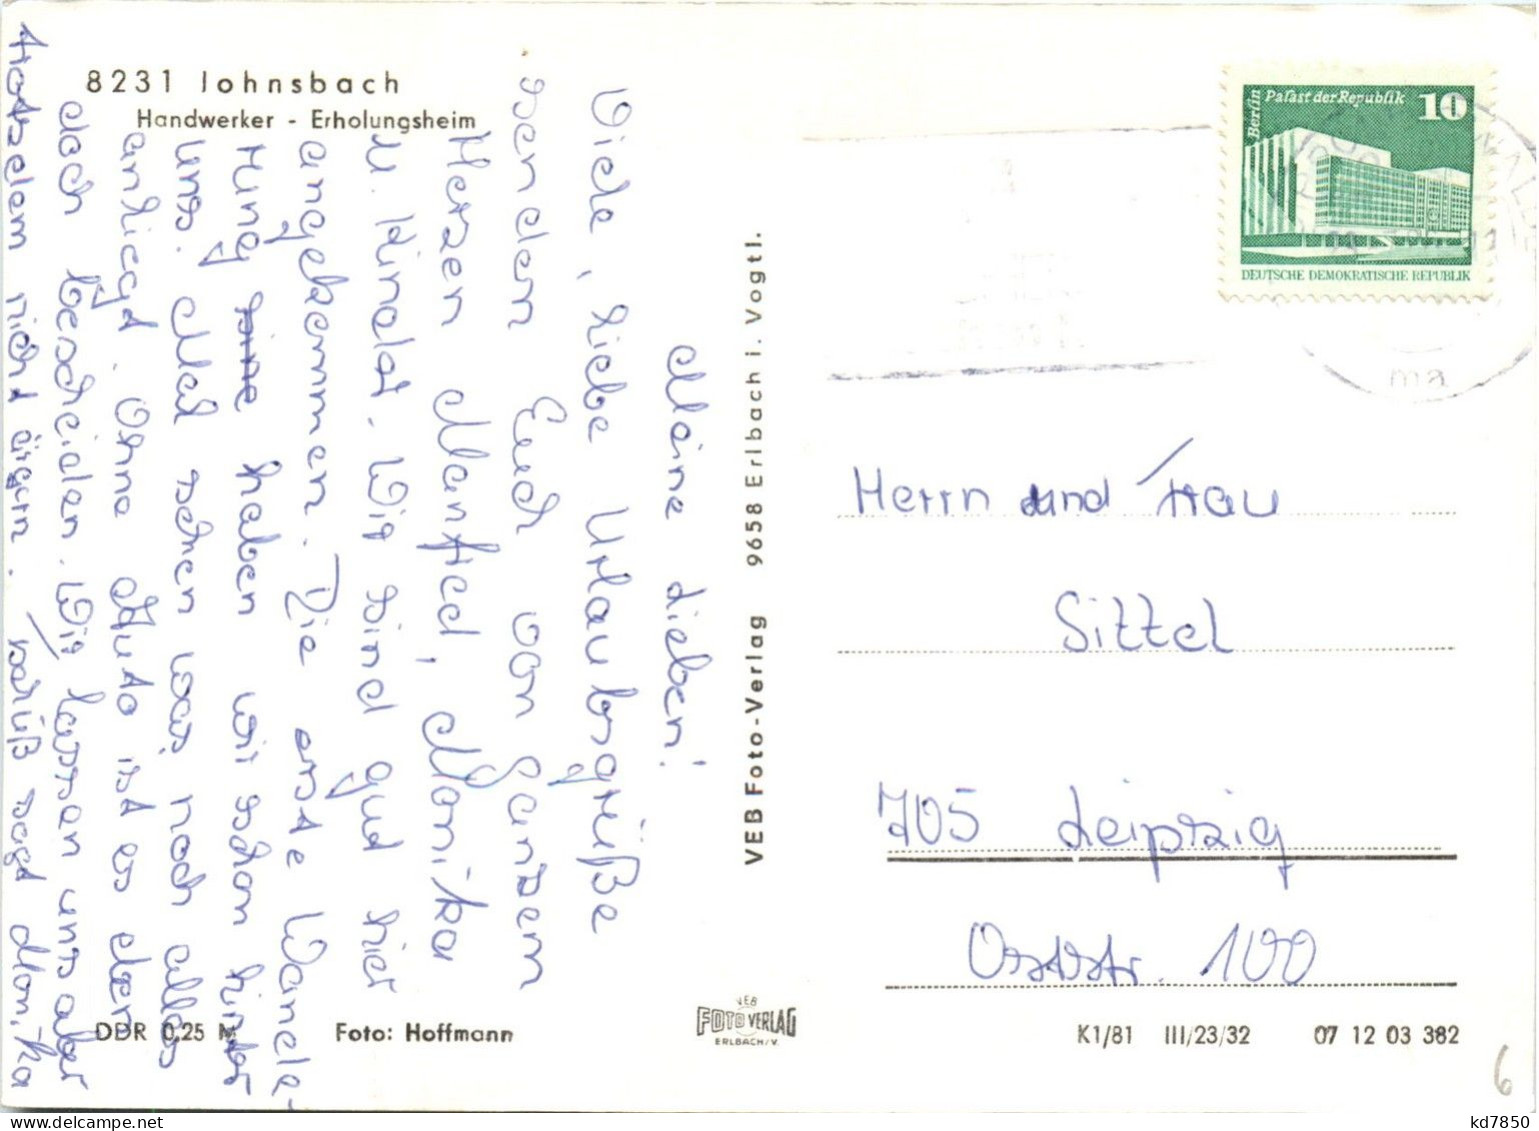 8231 Johnsbach
Handwerker - Erholungsheim
Meine Lieben!
Viele, liebe Urlaubsgrüße
senden Euch von ganzem
Herzen Manfred, Monika
u. Kinder. Wir sind gut hier
angekommen. Die erste Wande-
rung haben wir schon hinter
uns. Mal sehen was noch alles
anliegt. Ohne Auto ist es eben
doch bescheiden. Wir lassen uns aber
trotzdem nicht ärgern. Tschüß sagt Monika
VEB Foto-Verlag 9658 Erlbach i. Vogtl.
Berlin
Palast der Republik
10
DEUTSCHE DEMOKRATISCHE REPUBLIK
ma
Herrn und Frau
Sittel
705 Leipzig
Oststr. 100
DDR 0,25 M
Foto: Hoffmann
VEB
FOTO VERLAG
ERLBACH/V.
K1/81 III/23/32 07 12 03 382
6
kd7850